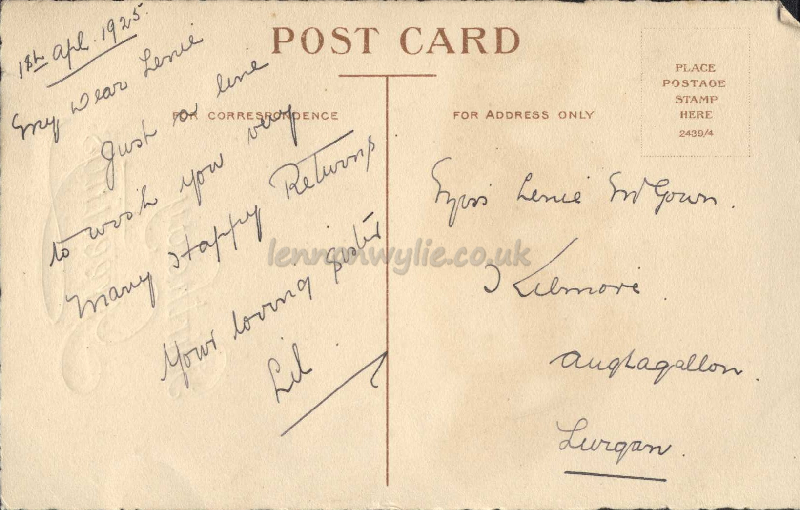 POST CARD
18th Apl. 1925.
My Dear Lenie
Just a line
to wish you very
Many Happy Returns
Your loving Sister
Lil
FOR CORRESPONDENCE
FOR ADDRESS ONLY
PLACE
POSTAGE
STAMP
HERE
2439/4
Miss Lenie McGown.
Kilmore.
Aughagallon.
Lurgan.
lennonwylie.co.uk